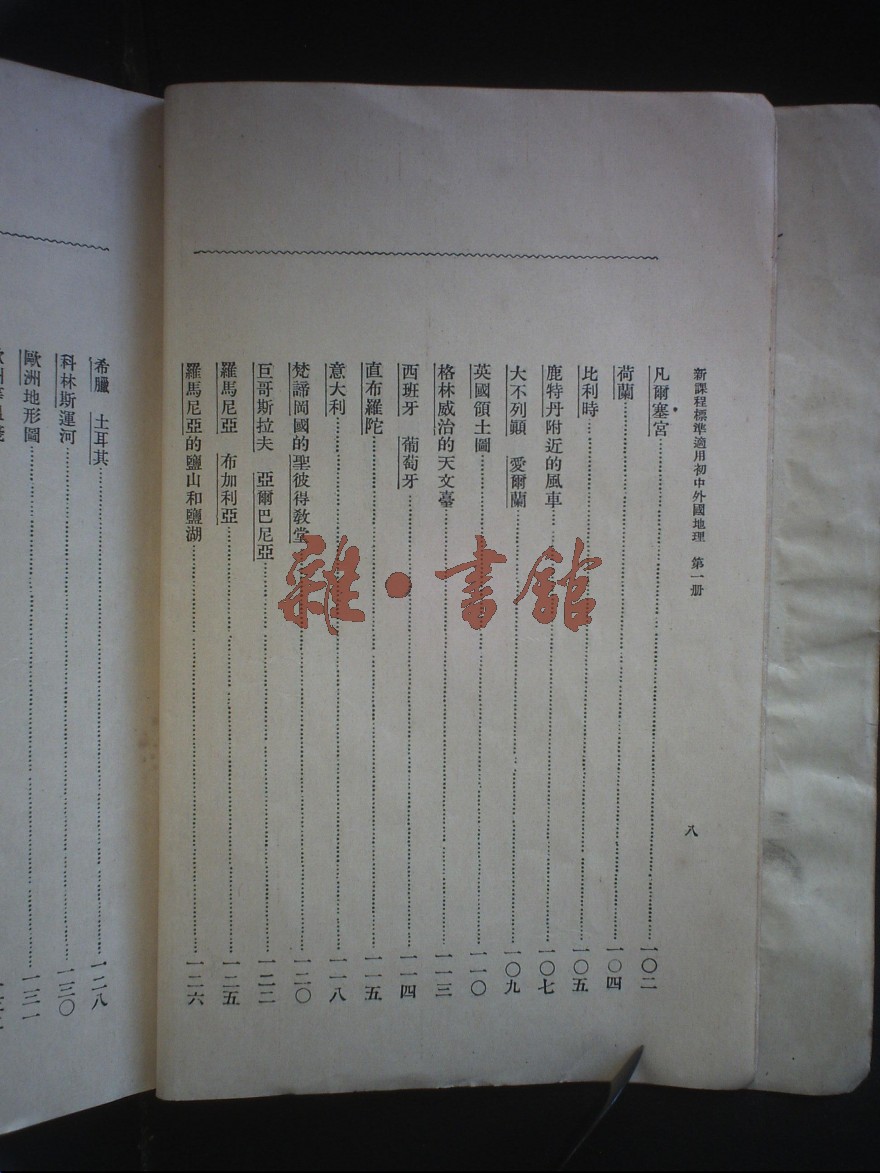 新課程標準適用初中外國地理 第一册
八
凡爾塞宮 一〇二
荷蘭 一〇四
比利時 一〇五
鹿特丹附近的風車 一〇七
大不列顚 愛爾蘭 一〇九
英國領土圖 一一〇
格林威治的天文臺 一一三
西班牙 葡萄牙 一一四
直布羅陀 一一五
意大利 一一八
梵諦岡國的聖彼得教堂 一二〇
巨哥斯拉夫 亞爾巴尼亞 一二二
羅馬尼亞 布加利亞 一二五
羅馬尼亞的鹽山和鹽湖 一二六
希臘 土耳其 一二八
科林斯運河 一三〇
歐洲地形圖 一三一
雜·書館